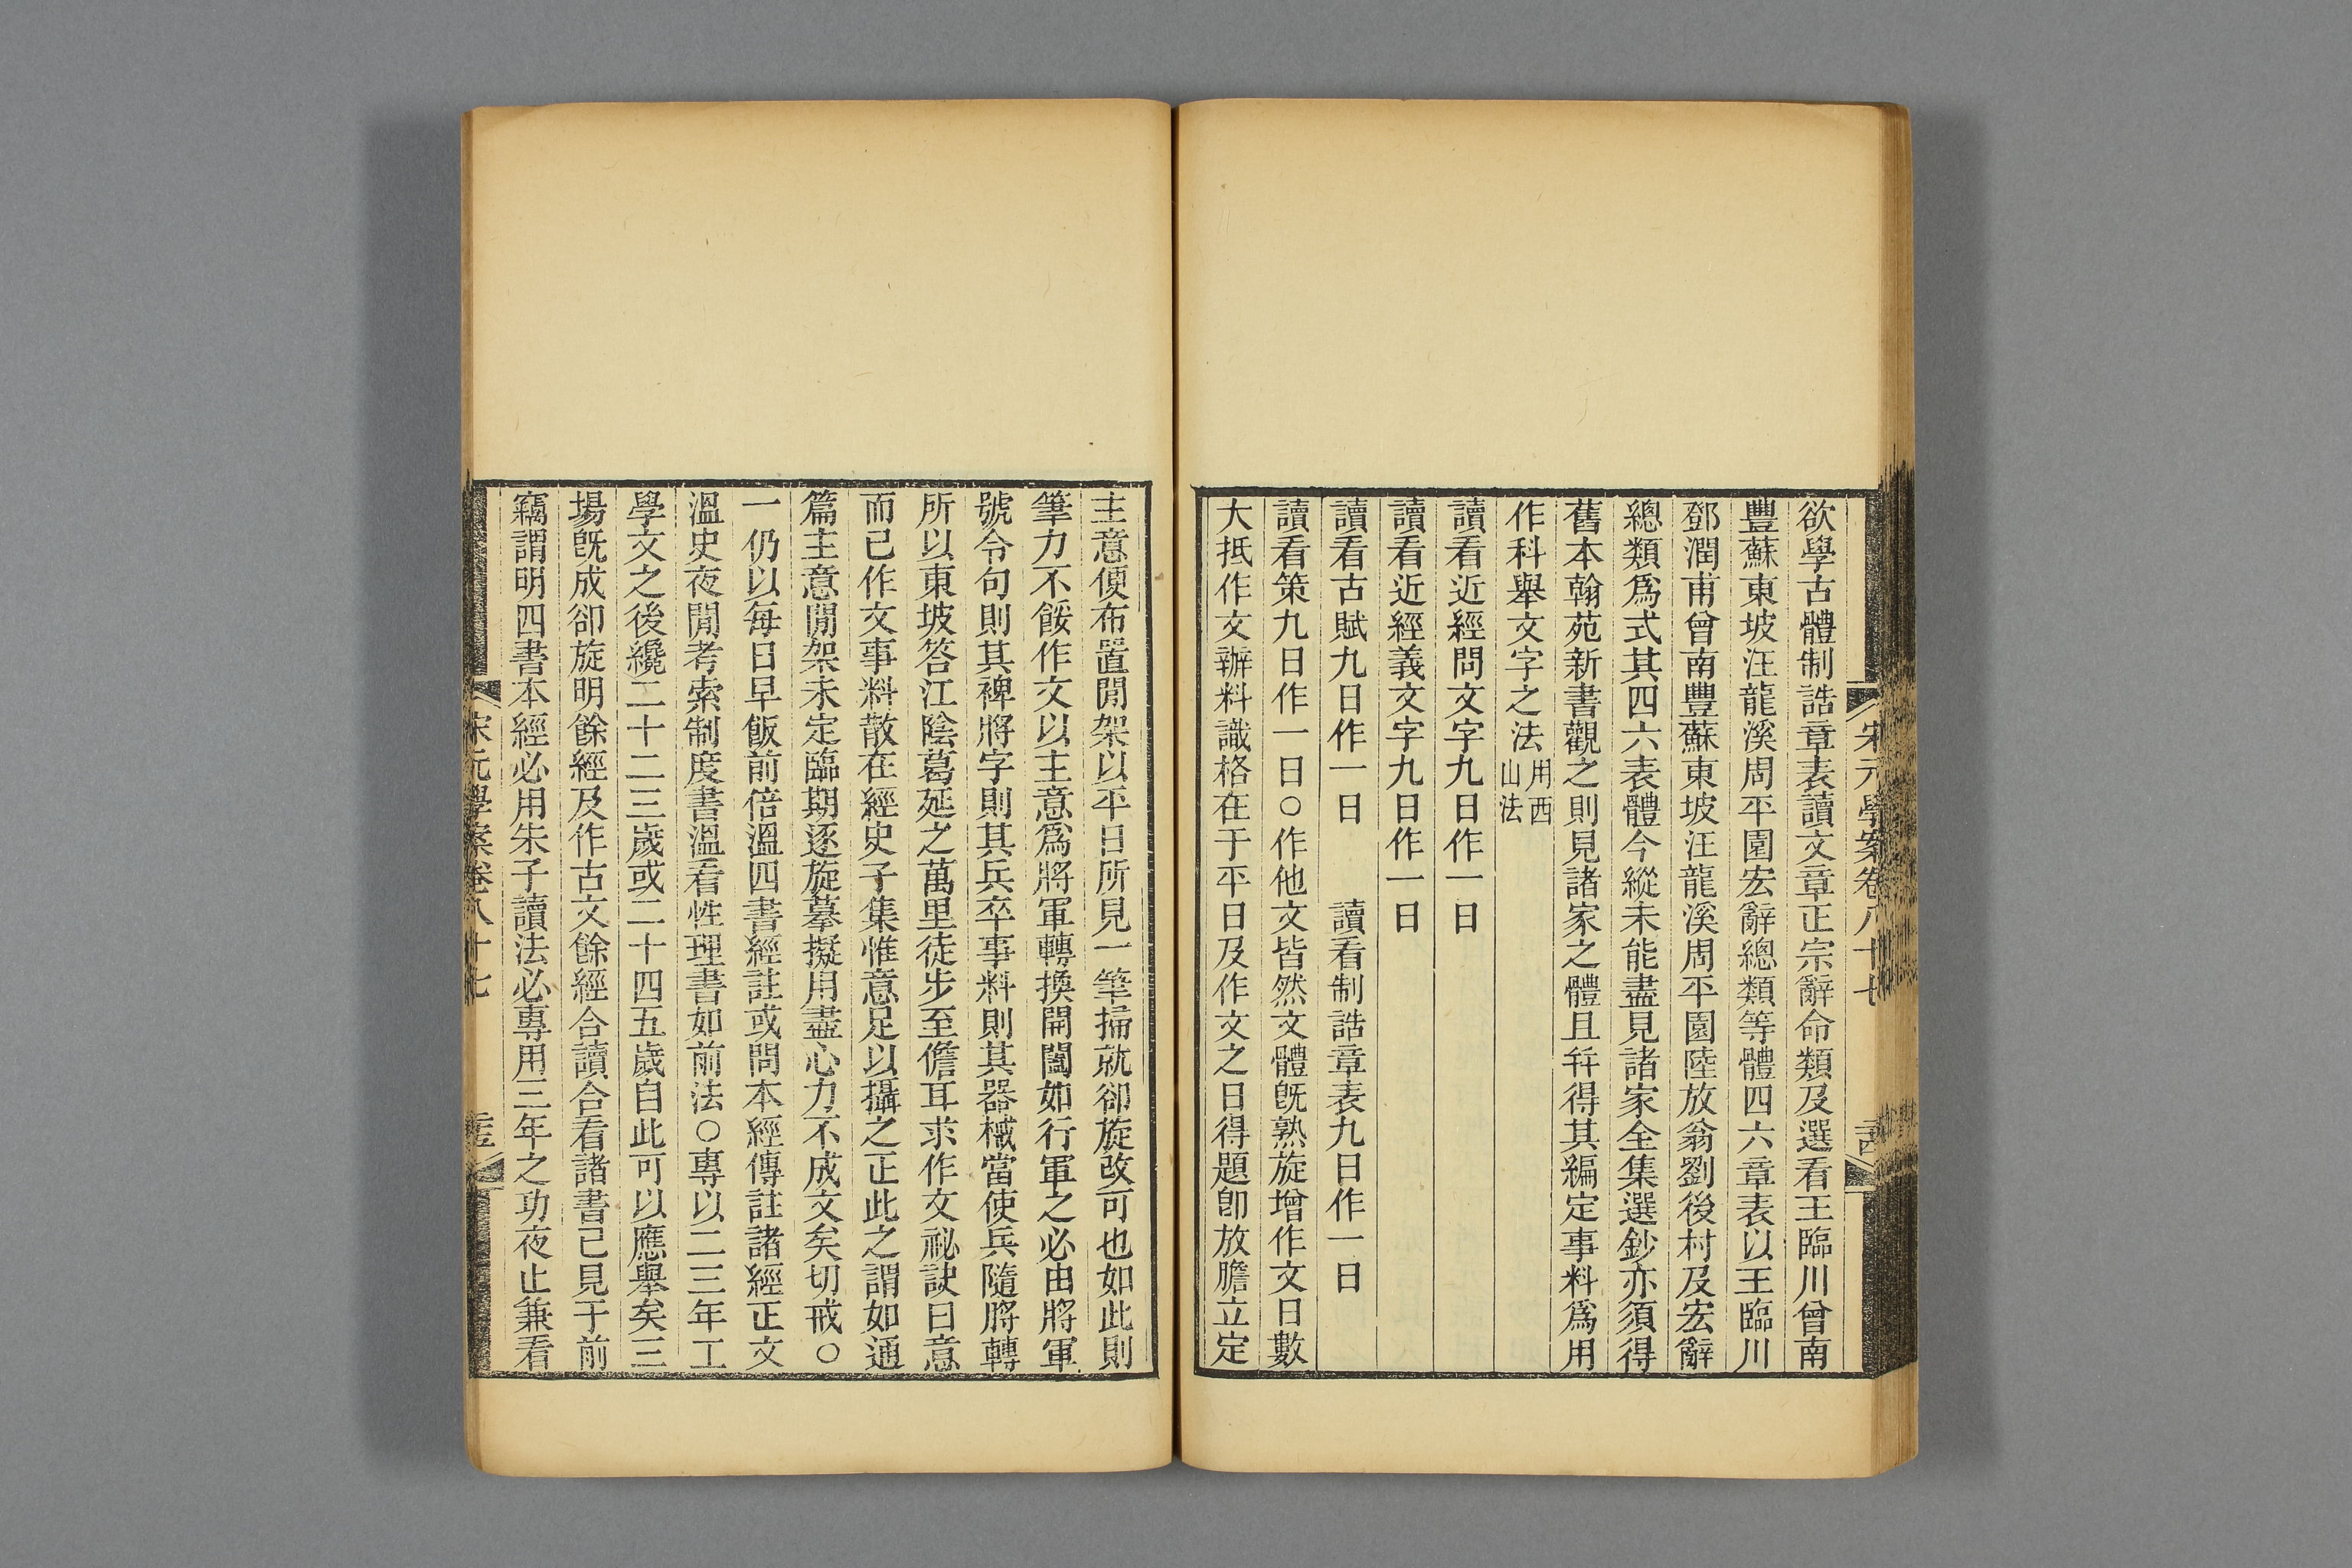 宋元學案卷八十七
欲學古體制誥章表讀文章正宗辭命類及選看王臨川曾南
豐蘇東坡汪龍溪周平園宏辭總類等體四六章表以王臨川
鄧潤甫曾南豐蘇東坡汪龍溪周平園陸放翁劉後村及宏辭
總類爲式其四六表體今縱未能盡見諸家全集選鈔亦須得
舊本翰苑新書觀之則見諸家之體且幷得其編定事料爲用
作科舉文字之法用西山法
讀看近經問文字九日作一日
讀看近經義文字九日作一日
讀看古賦九日作一日　讀看制誥章表九日作一日
讀看策九日作一日○作他文皆然文體旣熟旋增作文日數
大抵作文辦料識格在于平日及作文之日得題卽放膽立定
主意便布置閒架以平日所見一筆掃就卻旋改可也如此則
筆力不餒作文以主意爲將軍轉換開闔如行軍之必由將軍
號令句則其裨將字則其兵卒事料則其器械當使兵隨將轉
所以東坡答江陰葛延之萬里徒步至儋耳求作文祕訣曰意
而已作文事料散在經史子集惟意足以攝之正此之謂如通
篇主意閒架未定臨期逐旋摹擬用盡心力不成文矣切戒○
一仍以每日早飯前倍溫四書經註或問本經傳註諸經正文
溫史夜閒考索制度書溫看性理書如前法○專以二三年工
學文之後纔二十二三歲或二十四五歲自此可以應舉矣三
場旣成卻旋明餘經及作古文餘經合讀合看諸書已見于前
竊謂明四書本經必用朱子讀法必專用三年之功夜止兼看
宋元學案卷八十七